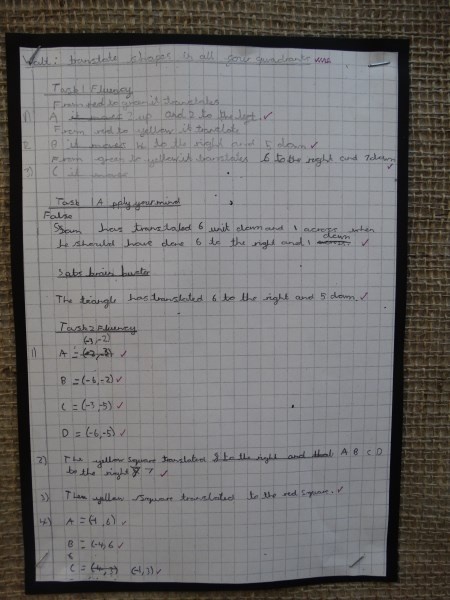 Walt: translate shapes in all four quadrants
Task 1 Fluency
From red to green it translates
1) A it moves 2 up and 2 to the left.
From red to yellow it translate
2. B it moves 4 to the right and 5 down
From green to yellow it translates 6 to the right and 7 down
3) C it move
Task 1 Apply your mind
False
Sam has translated 6 unit down and 1 across when
he should have done 6 to the right and 1 down
brain buster
The triangle has translated 6 to the right and 5 down
Task 2 Fluency
(-3,-2)
1) A =
B = (-6,-2)
C = (-3,-5)
D = (-6,-5)
2) The yellow square translated 8 to the right and that A B C D
to the right 7
3) The yellow square translated to the red square.
4) A = (-1,6)
B = (-4,6
C = (-4,3) (-1,3)